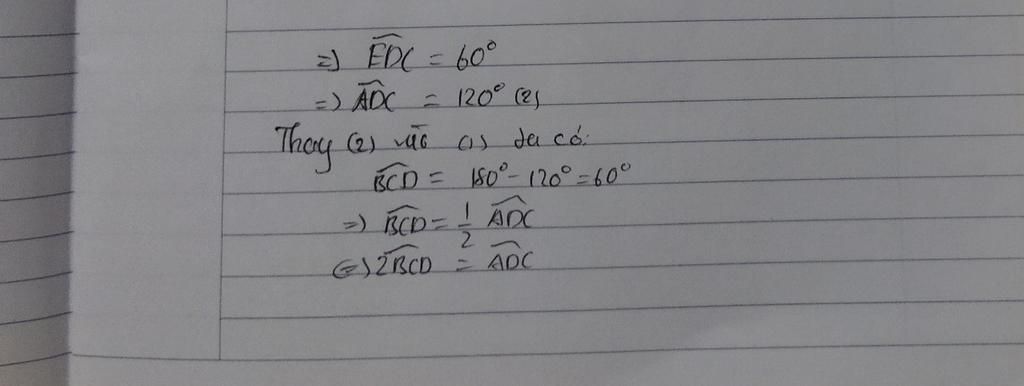 => \widehat{EDC} = 60°
=> \widehat{ADC} = 120° (2)
Thay (2) vào (1) ta có:
\widehat{BCD} = 180° - 120° = 60°
=> \widehat{BCD} = \frac{1}{2} \widehat{ADC}
<=> 2\widehat{BCD} = \widehat{ADC}